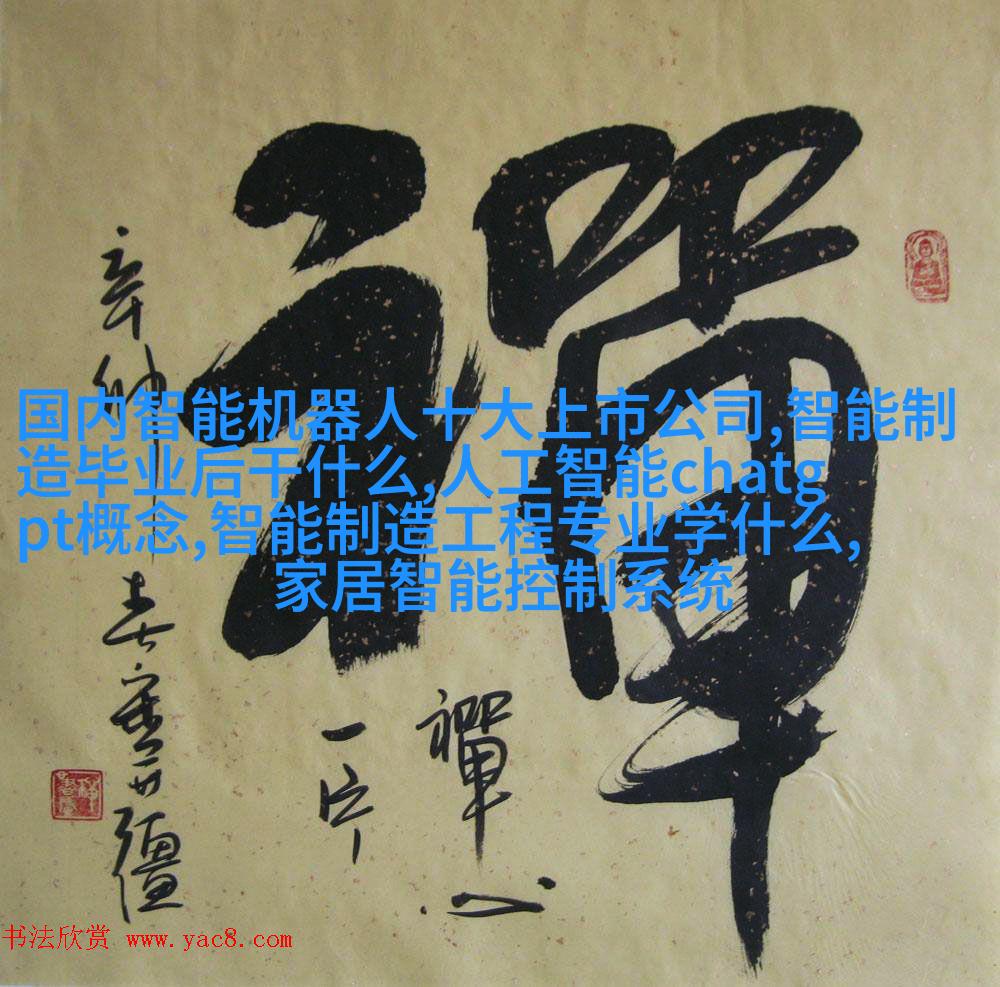 禪
禪心
一片
辛卯
国内智能机器人十大上市公司,智能制
造毕业后干什么,人工智能chatg
pt概念,智能制造工程专业学什么,
家居智能控制系统
书法欣赏 www.yac8.com